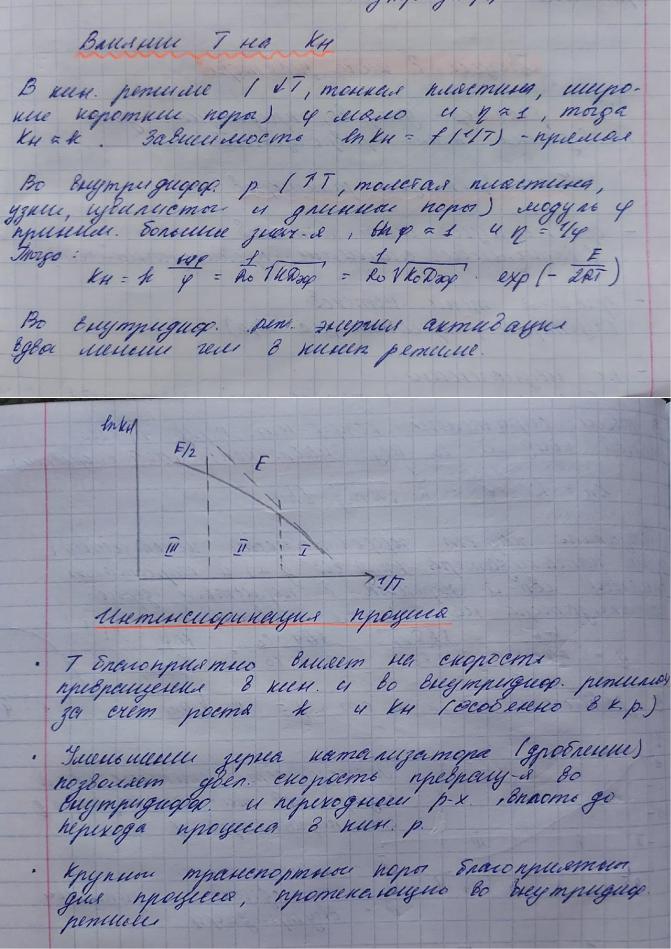 Влияние T на Kн
В кин. режиме (↓T, тонкая пластина, широ-
кие короткие поры) φ-мало и η≈1, тогда
Kн≈k. Зависимость lnKн = f(1/T) - прямая
Во внутридифф. р (↑T, толстая пластина,
узкие, извилистые и длинные поры) модуль φ
приним. большие знач-я, thφ≈1 и η=1/φ
Тогда:
Kн = k thφ/φ = 1/R₀ √KDэф = 1/R₀ √K₀Dэф · exp(- E/2RT)
Во внутридиф. реж. энергия активации
вдвое меньше чем в кинет режиме.
lnKн
E/2 E
III II I
1/T
Интенсификация процесса
· T благоприятно влияет на скорость
превращения в кин. и во внутридиф. режимах
за счет роста k и Kн (особенно в к.р.)
· Уменьшение зерна катализатора (дробление)
позволяет увел. скорость превращ-я во
внутридифф. и переходном р-х, вплоть до
перехода процесса в кин. р.
· Крупные транспортные поры благоприятны
для процесса, протекающию во внутридиф.
режиме